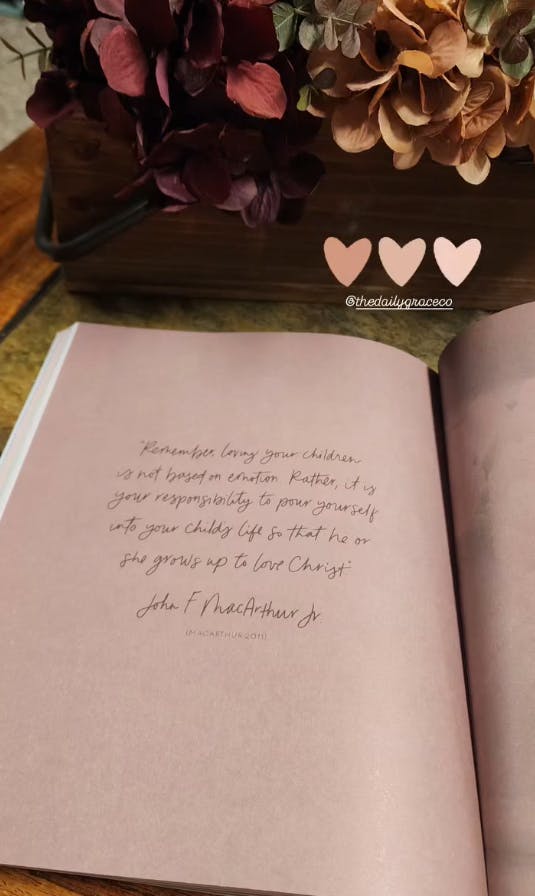 @thedailygraceco
"Remember, loving your children
is not based on emotion. Rather, it is
your responsibility to pour yourself
into your child's life so that he or
she grows up to love Christ."
John F MacArthur Jr.
(MACARTHUR 2011)